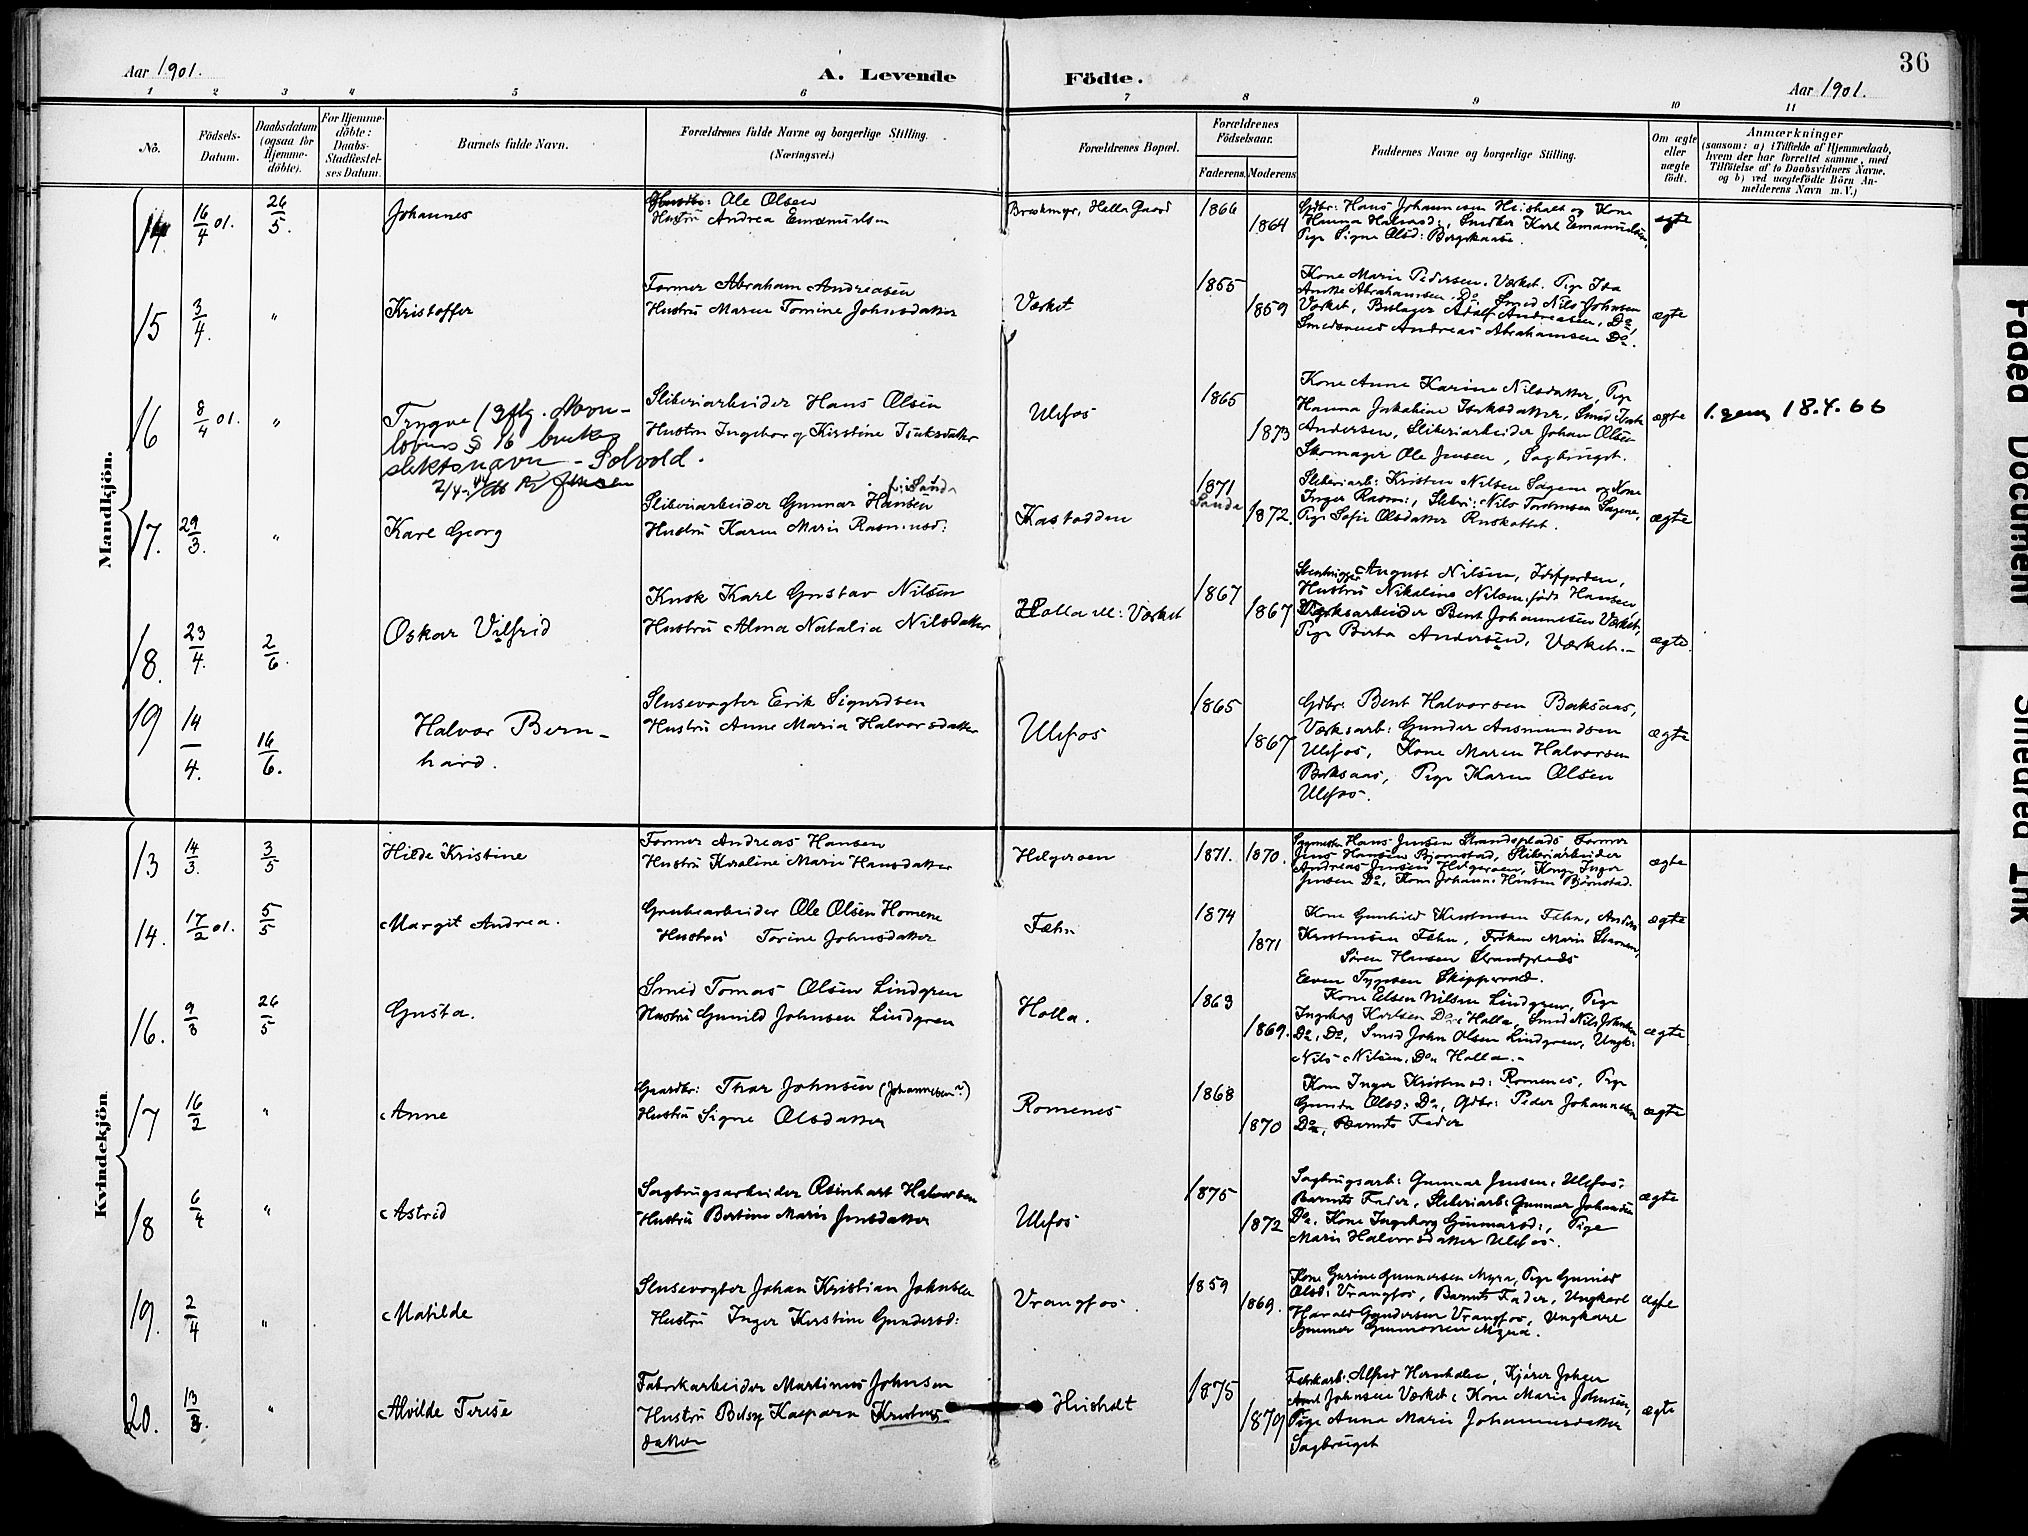 Aar 1901.
A. Levende
Födte.
36
Aar 1901.
1 2 3 4 5 6 7 8 9 10 11
No.
Födsels-
Datum.
Daabsdatum
(ogsaa for
Hjemme-
döbte).
For Hjemme-
döbte:
Daabs-
Stadfæstel-
ses Datum.
Barnets fulde Navn.
Forældrenes fulde Navne og borgerlige Stilling.
(Næringsvei.)
Forældrenes Bopæl.
Forældrenes
Födselsaar.
Faderens. Moderens
Faddernes Navne og borgerlige Stilling.
Om ægte
eller
uægte
födt.
Anmærkninger
(saasom: a) i Tilfælde af Hjemmedaab,
hvem der har forrettet samme, med
Tilföielse af to Daabsvidners Navne,
og b) ved uægtefödte Börn An-
melderens Navn m. V.)
Mandkjön.
14. 16/4 01. 26/5.
Johannes
Ole Olsen
Hustru Andrea Emanuelsen
Holla Gaard
1866
1864
Gdbr: Hans Johannesen Heisholt og Kone
Hanna Halvorsd:, Smedker Karl Emanuelsen,
Pige Signe Olsd:
ægte
15 3/4. "
Kristoffer
Former Abraham Andreasen
Hustru Maren Tomine Johnsdatter
Værket
1855
1859
Kone Marie Pedersen, Værket. Pige Ida
Abrahamsen, Do, Smed Nils Johnsen
Værket, Beslager Adolf Andreasen, Do,
Andreas Abrahamsen Do.
ægte
16 8/4 01. "
Trygve (Iflg. Navne-
lovens § 16 brukes
slektsnavn - Solvold.
Sliberiarbeider Hans Olsen
Hustru Ingeborg Kirstine Isaksdatter
Ulefos
1865
1873
Kone Anne Karine Nilsdatter, Pige
Hanna Jakobine Isaksdatter, Smed Isak
Andersen, Sliberiarbeider Johan Olsen
Skomager Ole Jensen, Sagbruget.
ægte
18.4.66
17. 29/3. "
Karl Georg
Sliberiarbeider Gunnar Hansen
Hustru Karen Marie Rasmusd:
Kastodden
1871
Sanda
1872.
Sliberiarb: Kristen Nilsen Sagene og Kone
Inger Rasm:, Slibri: Nils Torstensen Sagene,
Pige Sofie Olsdatter
ægte
18. 23/4. 2/6.
Oskar Vilfrid
Kusk Karl Gustav Nilsen
Hustru Alma Natalia Nilsdatter
Holla el: Værket
1867
1867
August Nilsen, Idefjorden,
Hustru Nikoline Nilsen, født Hansen
Værksarbeider Bent Johannesen Værket,
Pige Berta Andersen, Værket.-
ægte.
19 14/4. 16/6.
Halvor Bern-
hard.
Slusevogter Erik Sigurdsen
Hustru Anne Maria Halvorsdatter
Ulefos
1865
1867
Gdbr: Bent Halvorsen Baksaas,
Værksarb: Gunder Aasmundsen
Ulefos, Kone Maren Halvorsen
Baksaas, Pige Karen Olsen
Ulefos.
ægte
Kvindekjön
13 14/3. 3/5
Hilde Kristine
Former Andreas Hansen
Hustru Karoline Marie Hansdatter
Helgeroen
1871. 1870.
Hans Jensen Strandsplads Former
Jens Hansen Bjørnstad, Sliberiarbeider
Andreas Jensen Helgeroen, Kone Inger
Jensen Do, Kone Johanne Hansen Bjørnstad.
ægte
14. 17/2 01. 5/5
Margit Andrea.
Grubearbeider Ole Olsen Homene
Hustru Torine Johnsdatter
Fæhn
1874
1871
Kone Gunhild Kristensen Fæhn, Anders
Kristensen Fæhn, Frøken Marie
Søren Hansen Strandsplads
Even Tygesen
ægte
16. 9/3 26/5
Gusta.
Smed Tomas Olsen Lindgren
Hustru Gunild Johnsen Lindgren
Holla.
1863
1869.
Kone Elsen Nilsen Lindgren, Pige
Ingeborg Karlsen Do, Holla, Smed Nils Johnsen
Do, Do, Smed John Olsen Lindgren, Ungk:
Nils Nilsen, Do, Holla.-
ægte
17 16/2 "
Anne
Gaardbr: Thor Johnsen (Johannesen?)
Hustru Signe Olsdatter
Romenes
1868
1870
Kone Inger Kristensd: Romenes, Pige
Gunda Olsd: Do, Gdbr: Peder Johannesen
Do, Barnets Fader
ægte
18 6/4 "
Astrid
Sagbrugsarbeider Reinhart Halvorsen
Hustru Bertine Marie Jensdatter
Ulefos
1875
1872
Sagbrugsarb: Gunnar Jensen, Ulefos,
Barnets Fader, Sliberiarb: Gunnar Johansen
Do, Kone Ingeborg Gunnarsd:, Pige
Marie Halvorsdatter Ulefos.
ægte
19. 2/4 "
Matilde
Slusevogter Johan Kristian Jakobsen
Hustru Inger Kirstine Gundersd:
Vrangfos.
1859
1869.
Kone Gurine Gunnersen Myra, Pige Gunild
Olsd: Vrangfos, Barnets Fader, Ungkarl
Harald Gundersen Vrangfos, Ungkarl
Gunnar Gunnarsen Myra.
ægte
20. 13/3. "
Alvilde Terese
Fabrikarbeider Martinus Johnsen
Hustru Betsy Kaspara Kristens
datter
Heisholt
1875
1879
Fabrikarb: Alfred Hernholm, Kjører Johan
Johnsen Værket, Kone Marie Johnsen,
Pige Anna Marie Johannesdatter
Sagbruget
ægte
Faded Document
Smeared Ink